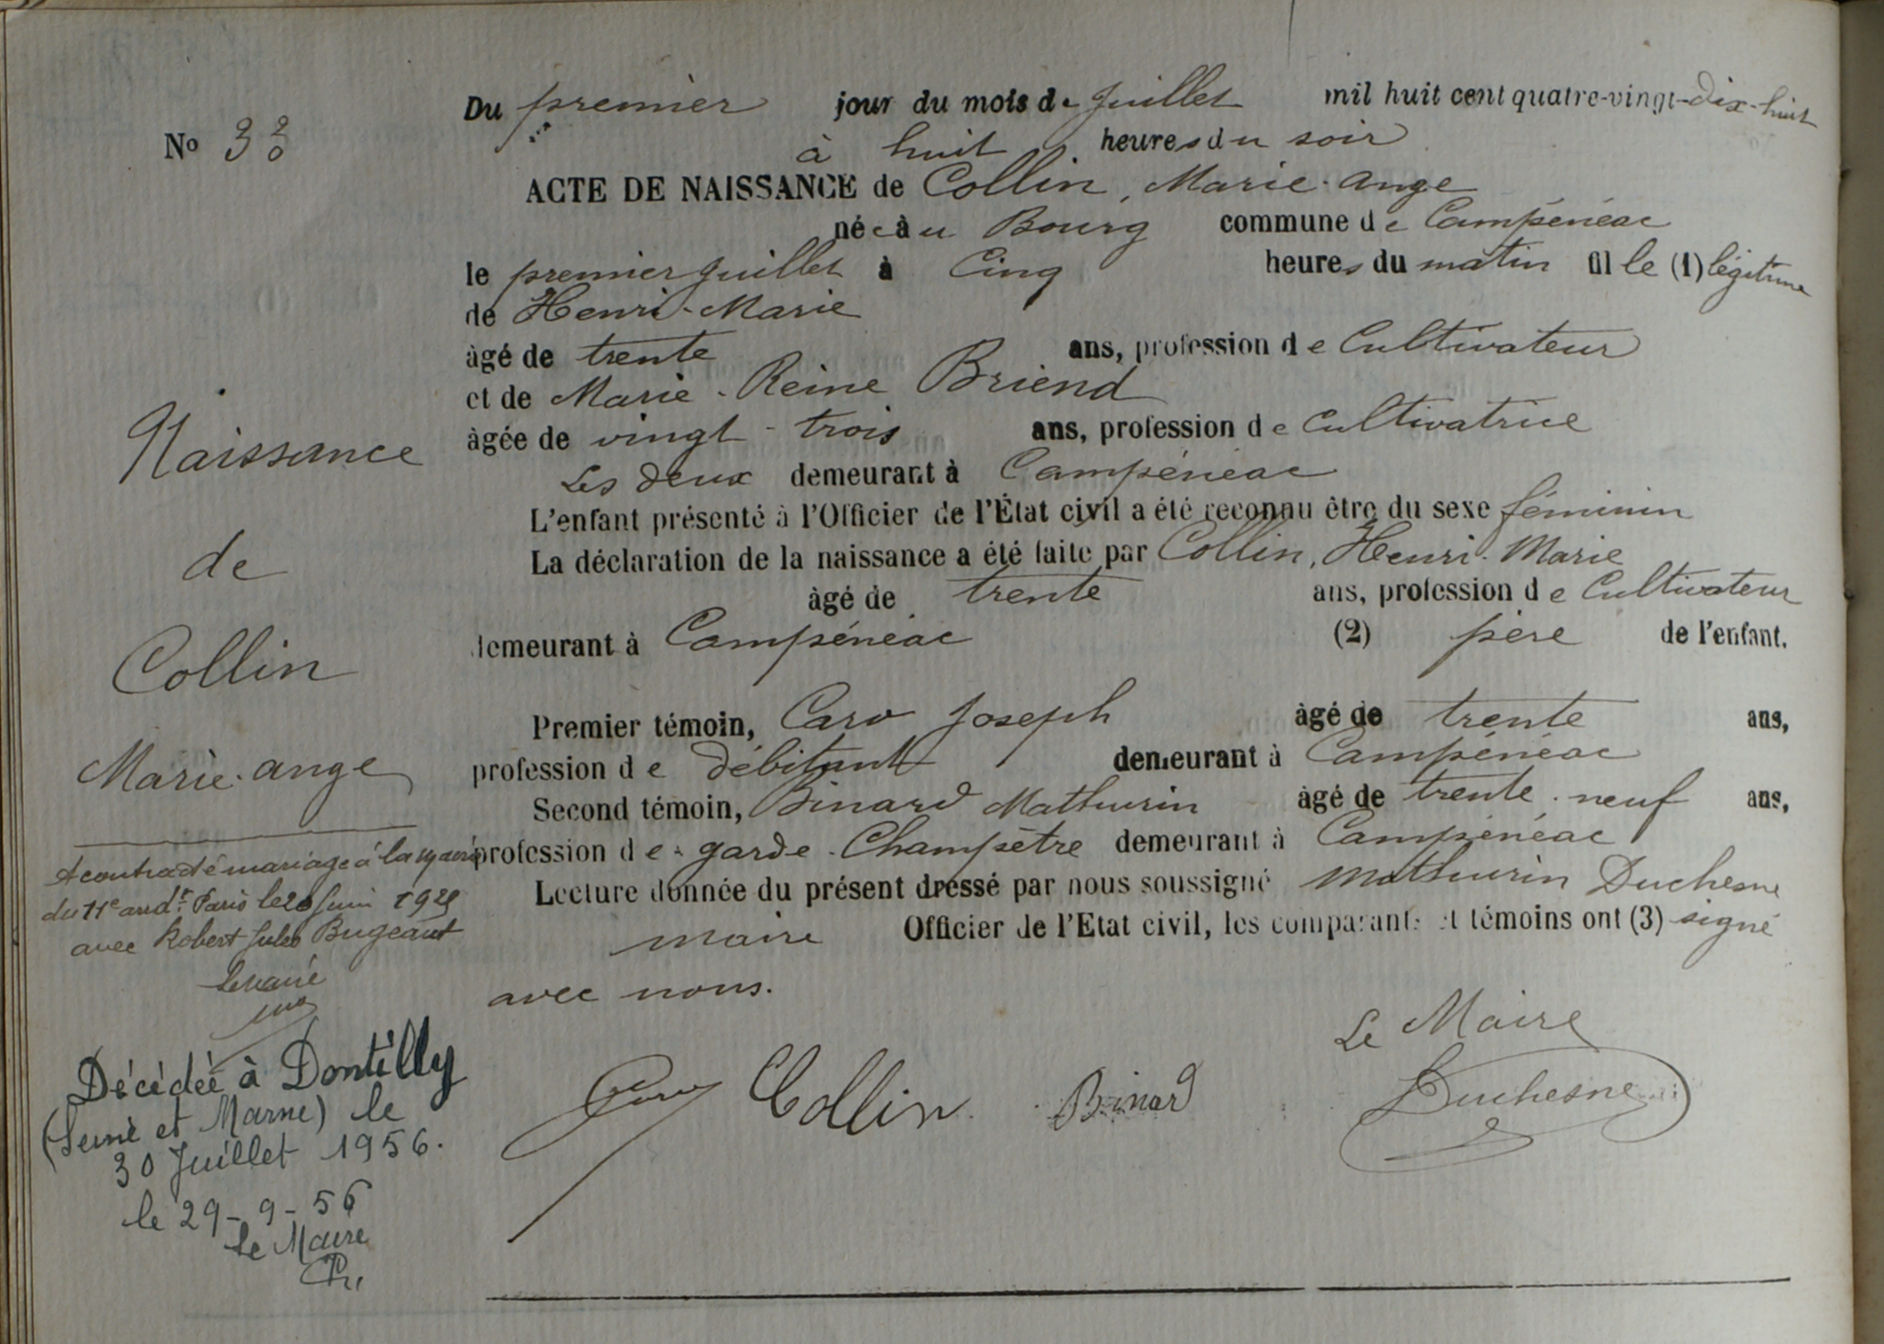 Du premier jour du mois de juillet mil huit cent quatre-vingt-dix-huit
No 33
à huit heures du soir
ACTE DE NAISSANCE de Collin, Marie-ange
née au Bourg commune de Campénéac
le premier juillet à Cinq heures du matin fille (1) légitime
de Henri-Marie
âgé de trente ans, profession de Cultivateur
et de Marie-Reine Briend
âgée de vingt-trois ans, profession de Cultivatrice
Les deux demeurant à Campénéac
L'enfant présenté à l'Officier de l'État civil a été reconnu être du sexe féminin
La déclaration de la naissance a été faite par Collin, Henri-Marie
âgé de trente ans, profession de Cultivateur
demeurant à Campénéac (2) père de l'enfant.
Premier témoin, Caro Joseph âgé de trente ans,
profession de débitant demeurant à Campénéac
Second témoin, Binard Mathurin âgé de trente-neuf ans,
profession de garde-Champêtre demeurant à Campénéac
Lecture donnée du présent dressé par nous soussigné Mathurin Duchesne
maire Officier de l'Etat civil, les comparants et témoins ont (3) signé
avec nous.
Le Maire
Caro Collin Binard Duchesne
Naissance
de
Collin
Marie-ange
A contracté mariage à la mairie
du 11e arrdt Paris le 20 Juin 1929
avec Robert Jules Bugeaut
Le Maire
Décédée à Dontilly
(Seine et Marne) le
30 Juillet 1956.
le 29-9-56
Le Maire